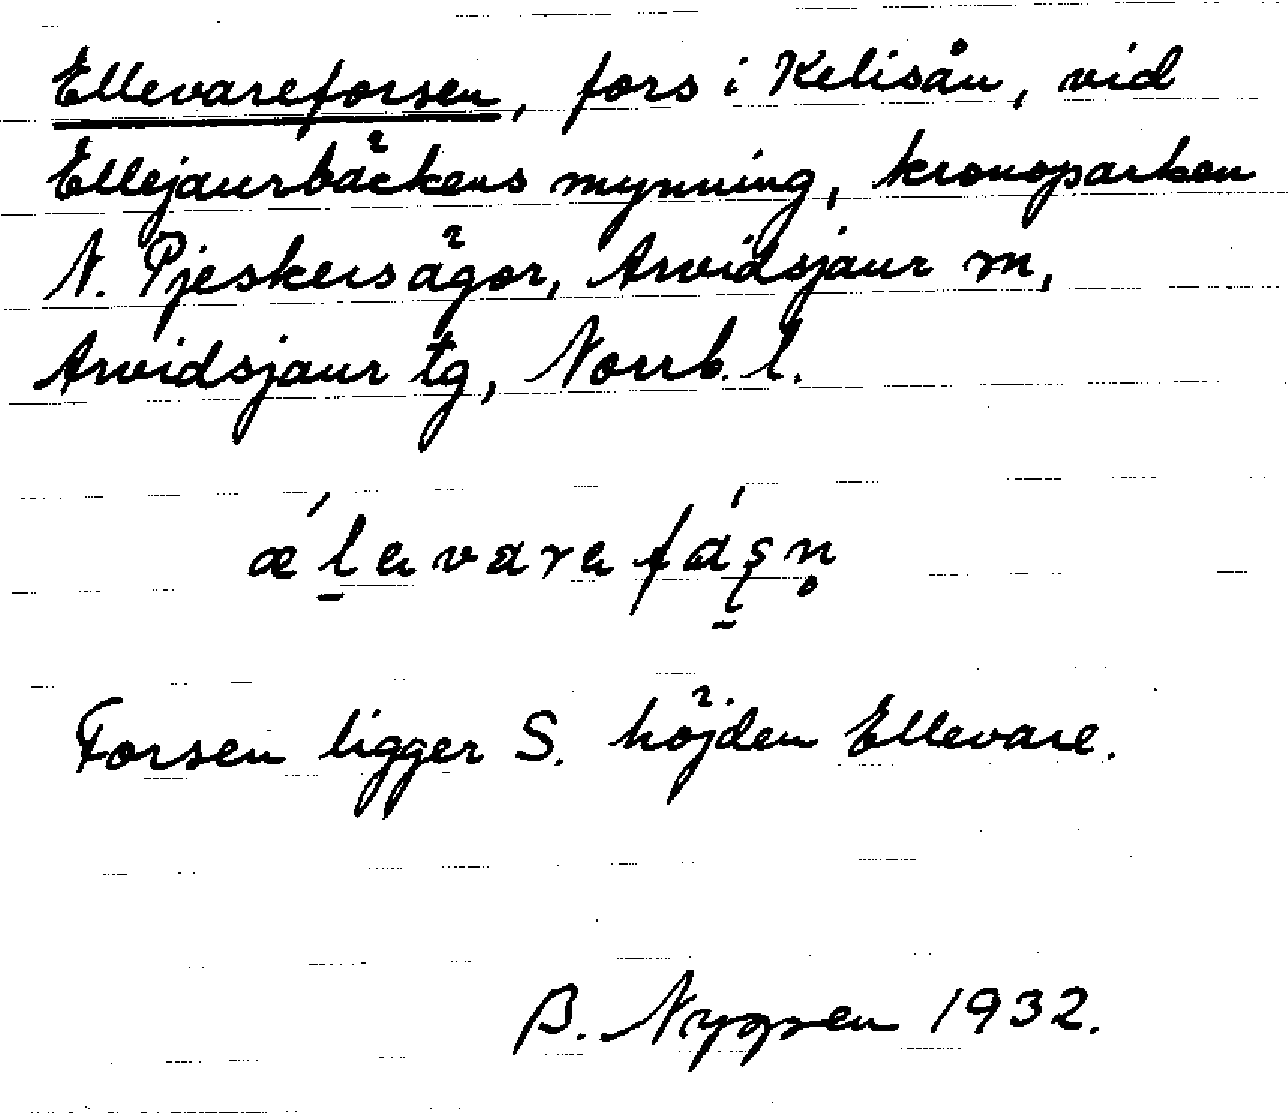 Ellevareforsen, fors i Kelisån, vid
Ellejaurbäckens mynning, kronoparken
N. Pjeskersägor, Arvidsjaur m,
Arvidsjaur tg, Norrb. l.
Forsen ligger S. höjden Ellevare.
B. Nygren 1932.